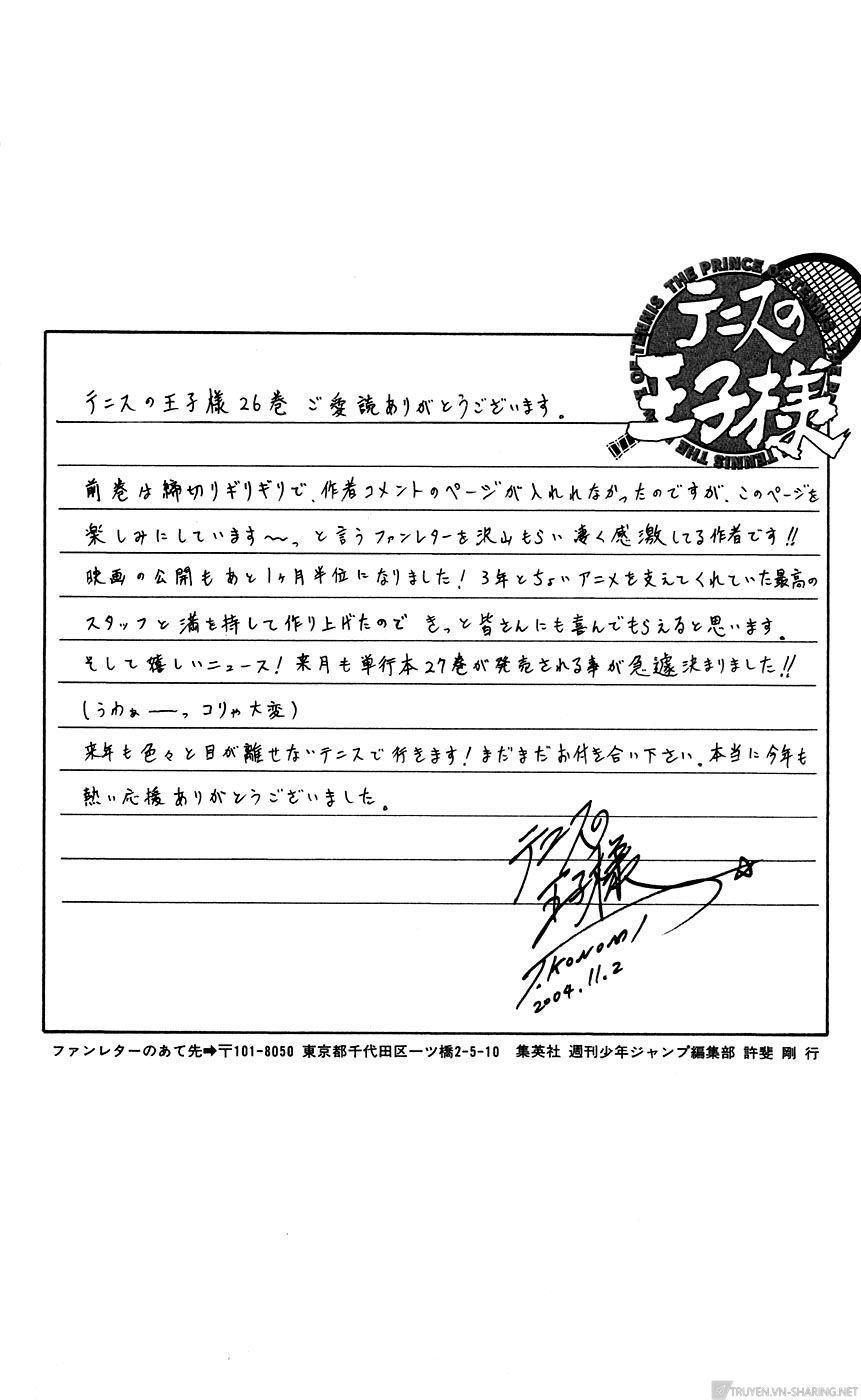 THE PRINCE OF TENNIS THE PRINCE OF TENNIS THE
テニスの
王子様
テニスの王子様26巻 ご愛読ありがとうございます。
前巻は締切りギリギリで、作者コメントのページが入れれなかったのですが、このページを
楽しみにしています〜っと言うファンレターを沢山もらい凄く感激してる作者です!!
映画の公開もあと1ヶ月半位になりました!3年とちょいアニメを支えてくれていた最高の
スタッフと満を持して作り上げたので きっと皆さんにも喜んでもらえると思います。
そして嬉しいニュース!来月も単行本27巻が発売される事が急遽決まりました!!
(うわぁ――っコリゃ大変)
来年も色々と目が離せないテニスで行きます!まだまだお付き合い下さい。本当に今年も
熱い応援ありがとうございました。
テニスの
王子様
T.KONOMI
2004.11.2
ファンレターのあて先➡〒101-8050 東京都千代田区一ツ橋2-5-10 集英社 週刊少年ジャンプ編集部 許斐 剛 行
TRUYEN.VN-SHARING.NET